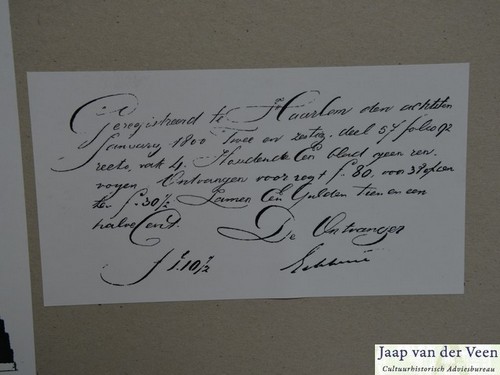 Geregistreerd te Haarlem den achtsten
January 1800 Twee en zestig. deel 57 folio 92
recto, vak 4. Houdende Een blad geen ren
voyen, Ontvangen voor regt f. 80. voor 38 opcen
ten f. 30½ Zamen Een Gulden tien en een
halve Cent. De Ontvanger
f 1.10½
Jaap van der Veen
Cultuurhistorisch Adviesbureau